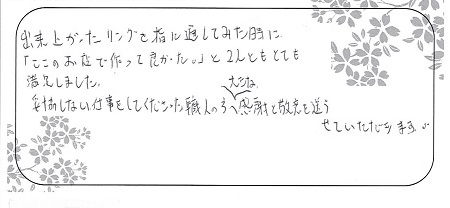 出来上がったリングを指に通してみた時に
「ここのお店で作って良かった。」と2人ともとても
満足しました。
妥協しない仕事をしてくださった職人の方へ大きな感謝と敬意を送ら
せていただきます。